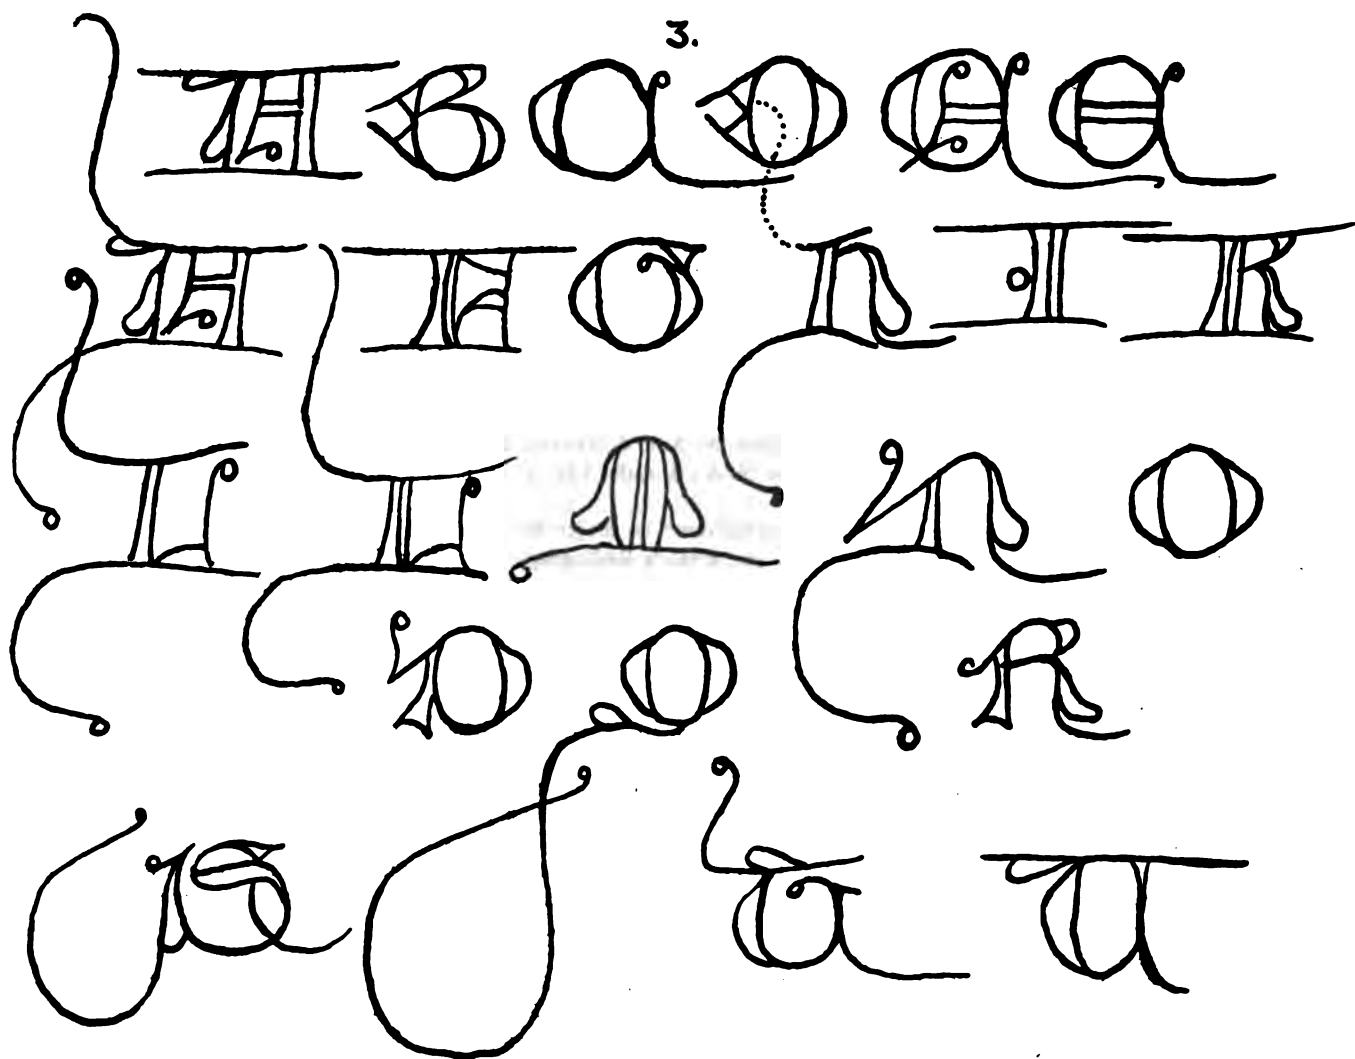 3.
A B C D E E
F G H I K
L L M N O
P Q R
S T T